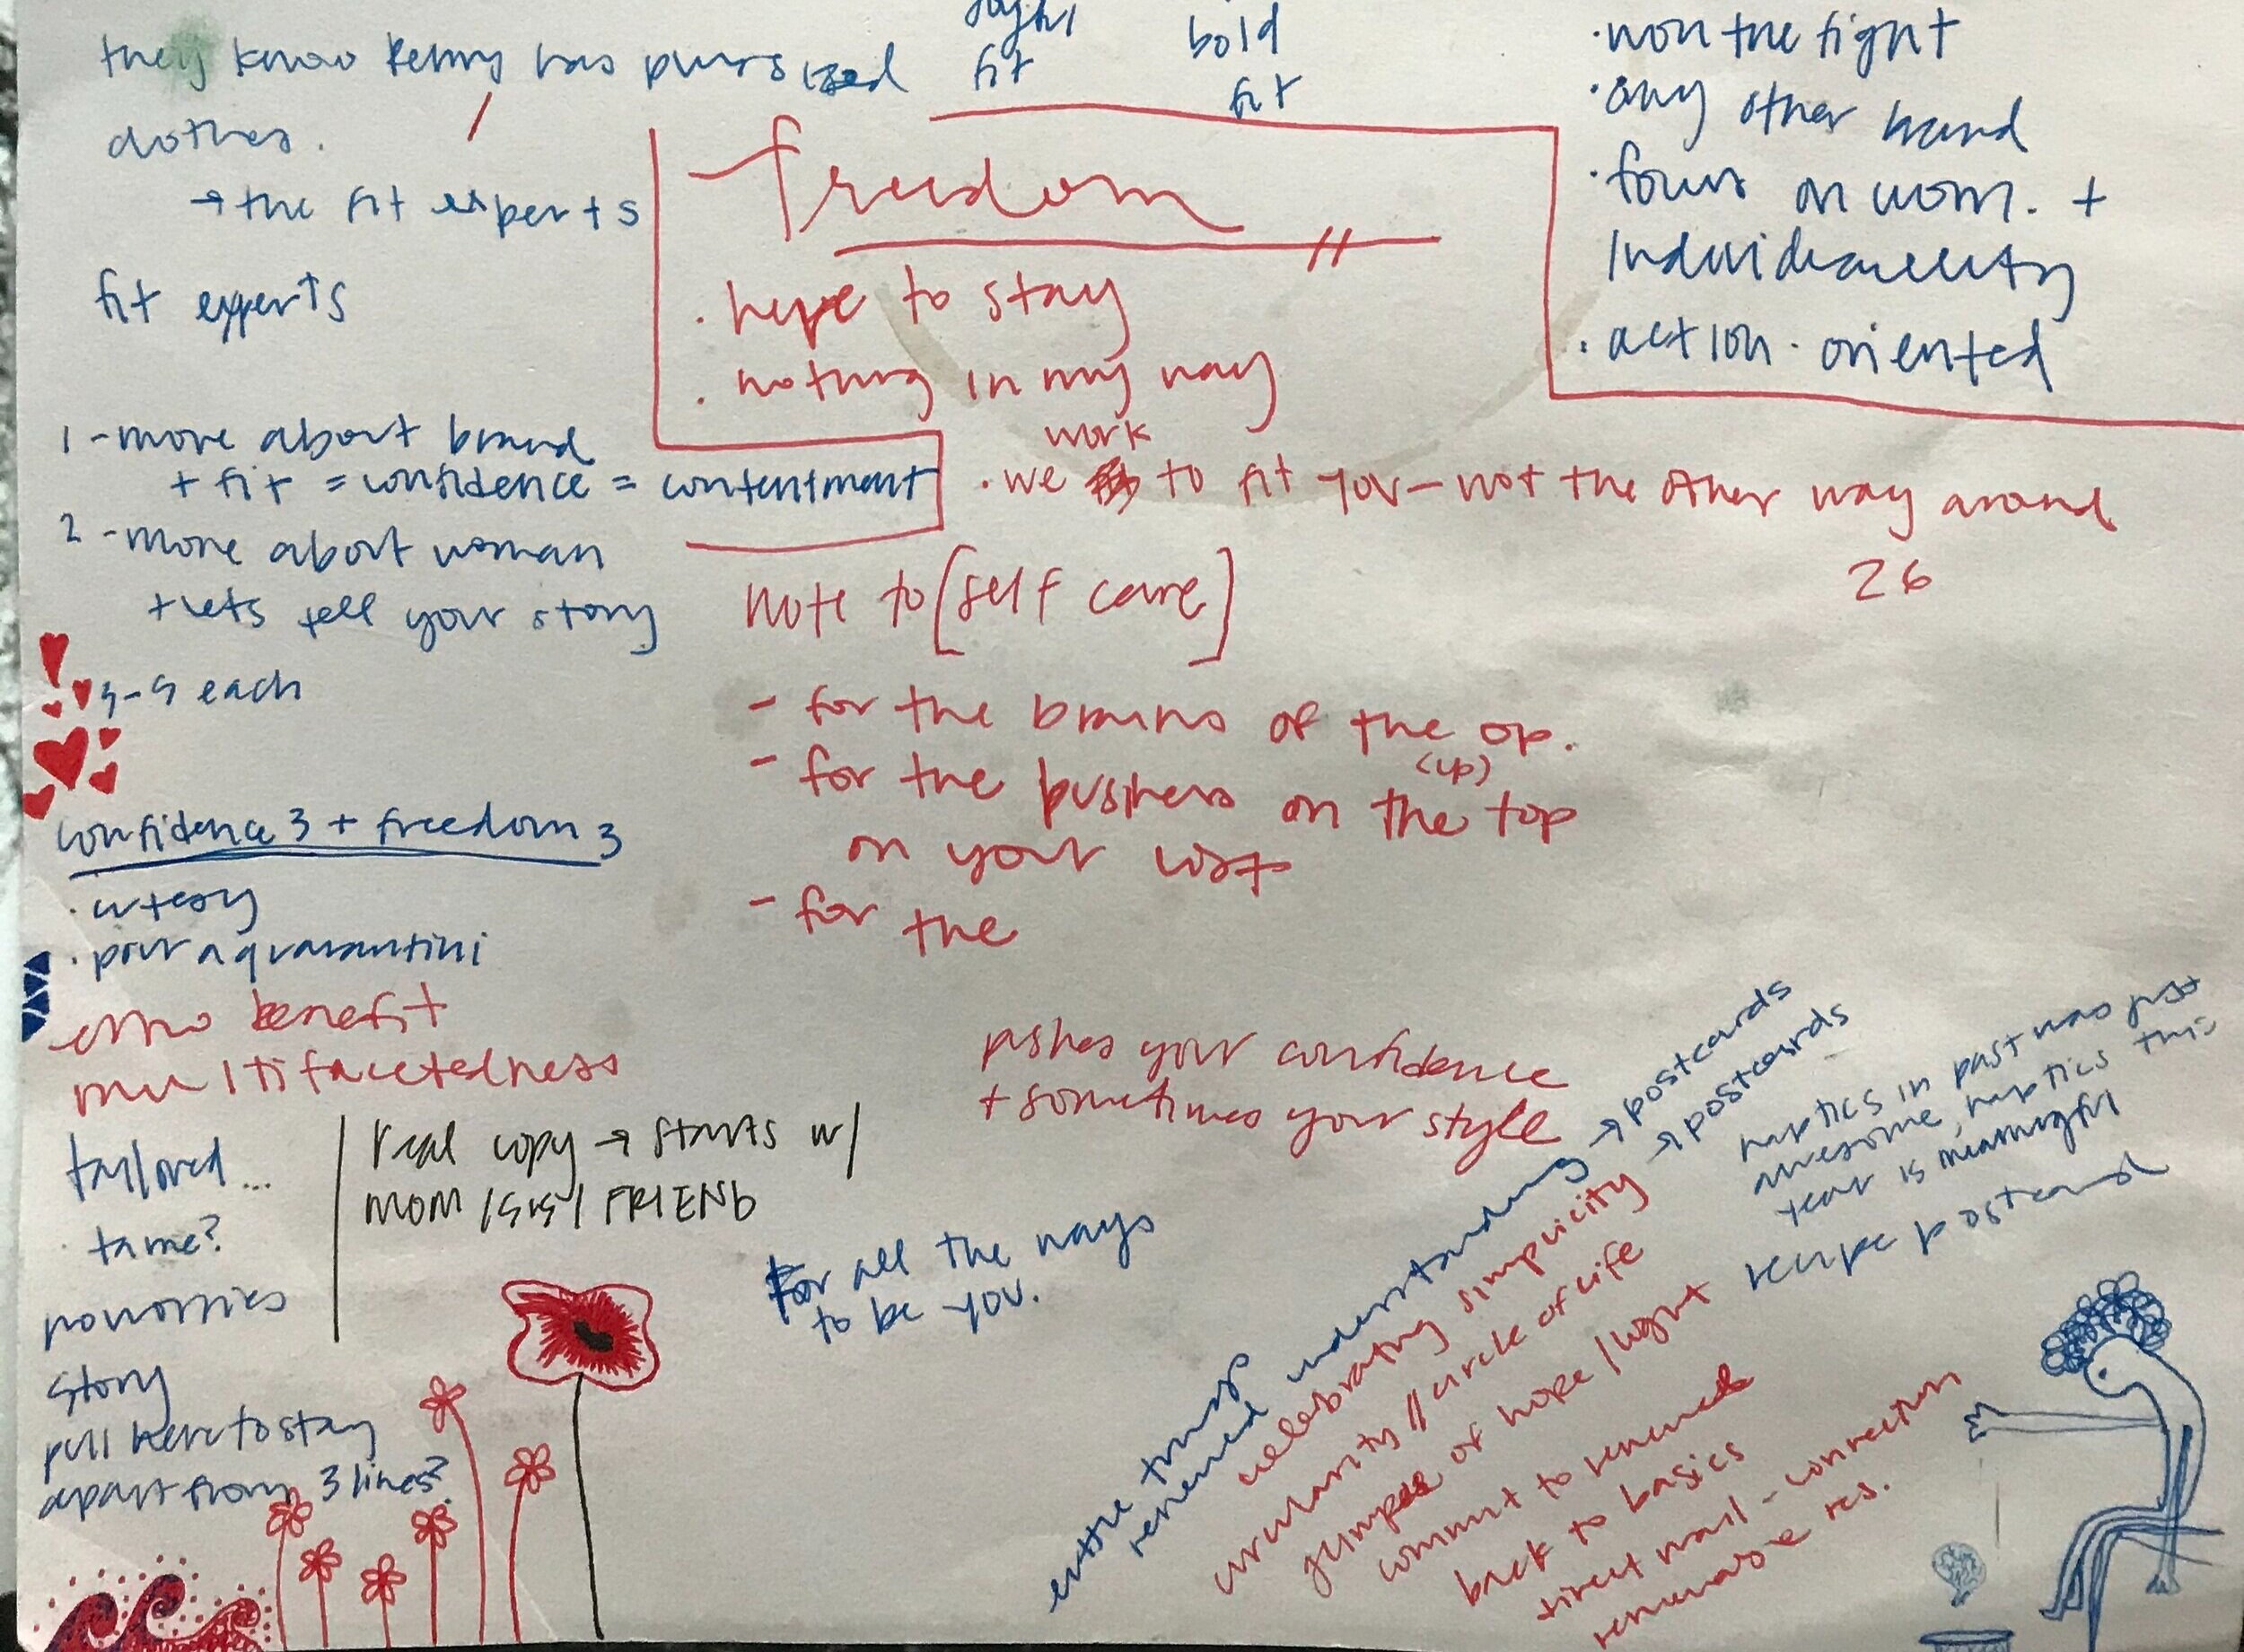 they know Kenny has plus sized
clothes.
→ the fit experts
fit experts
1 - more about brand
+ fit = confidence = contentment
2 - more about woman
+ lets tell your story
each
confidence 3 + freedom 3
· pour a quarantini
emo benefit
multifacetedness
tailored...
· tame?
story
pull here to stay
apart from 3 lines?
real copy → starts w/
MOM / SIS / FRIEND
fit
bold
fit
freedom
· here to stay
· nothing in my way
work
· we to fit you - not the other way around
26
note to [self care]
- for the brains of the op.
- for the business on the top
(up)
on your
- for the
pushes your confidence
+ sometimes your style
For all the ways
to be you.
· won the fight
· any other brand
· focus on wom. +
individuality
· action-oriented
renewed understanding → postcards
celebrating simplicity → postcards
circularity // circle of life
glimpse of hope / light
commit to renewed
back to basics
direct mail - connection
res.
haptics in past was just
awesome, haptics this
year is meaningful
recipe postcard